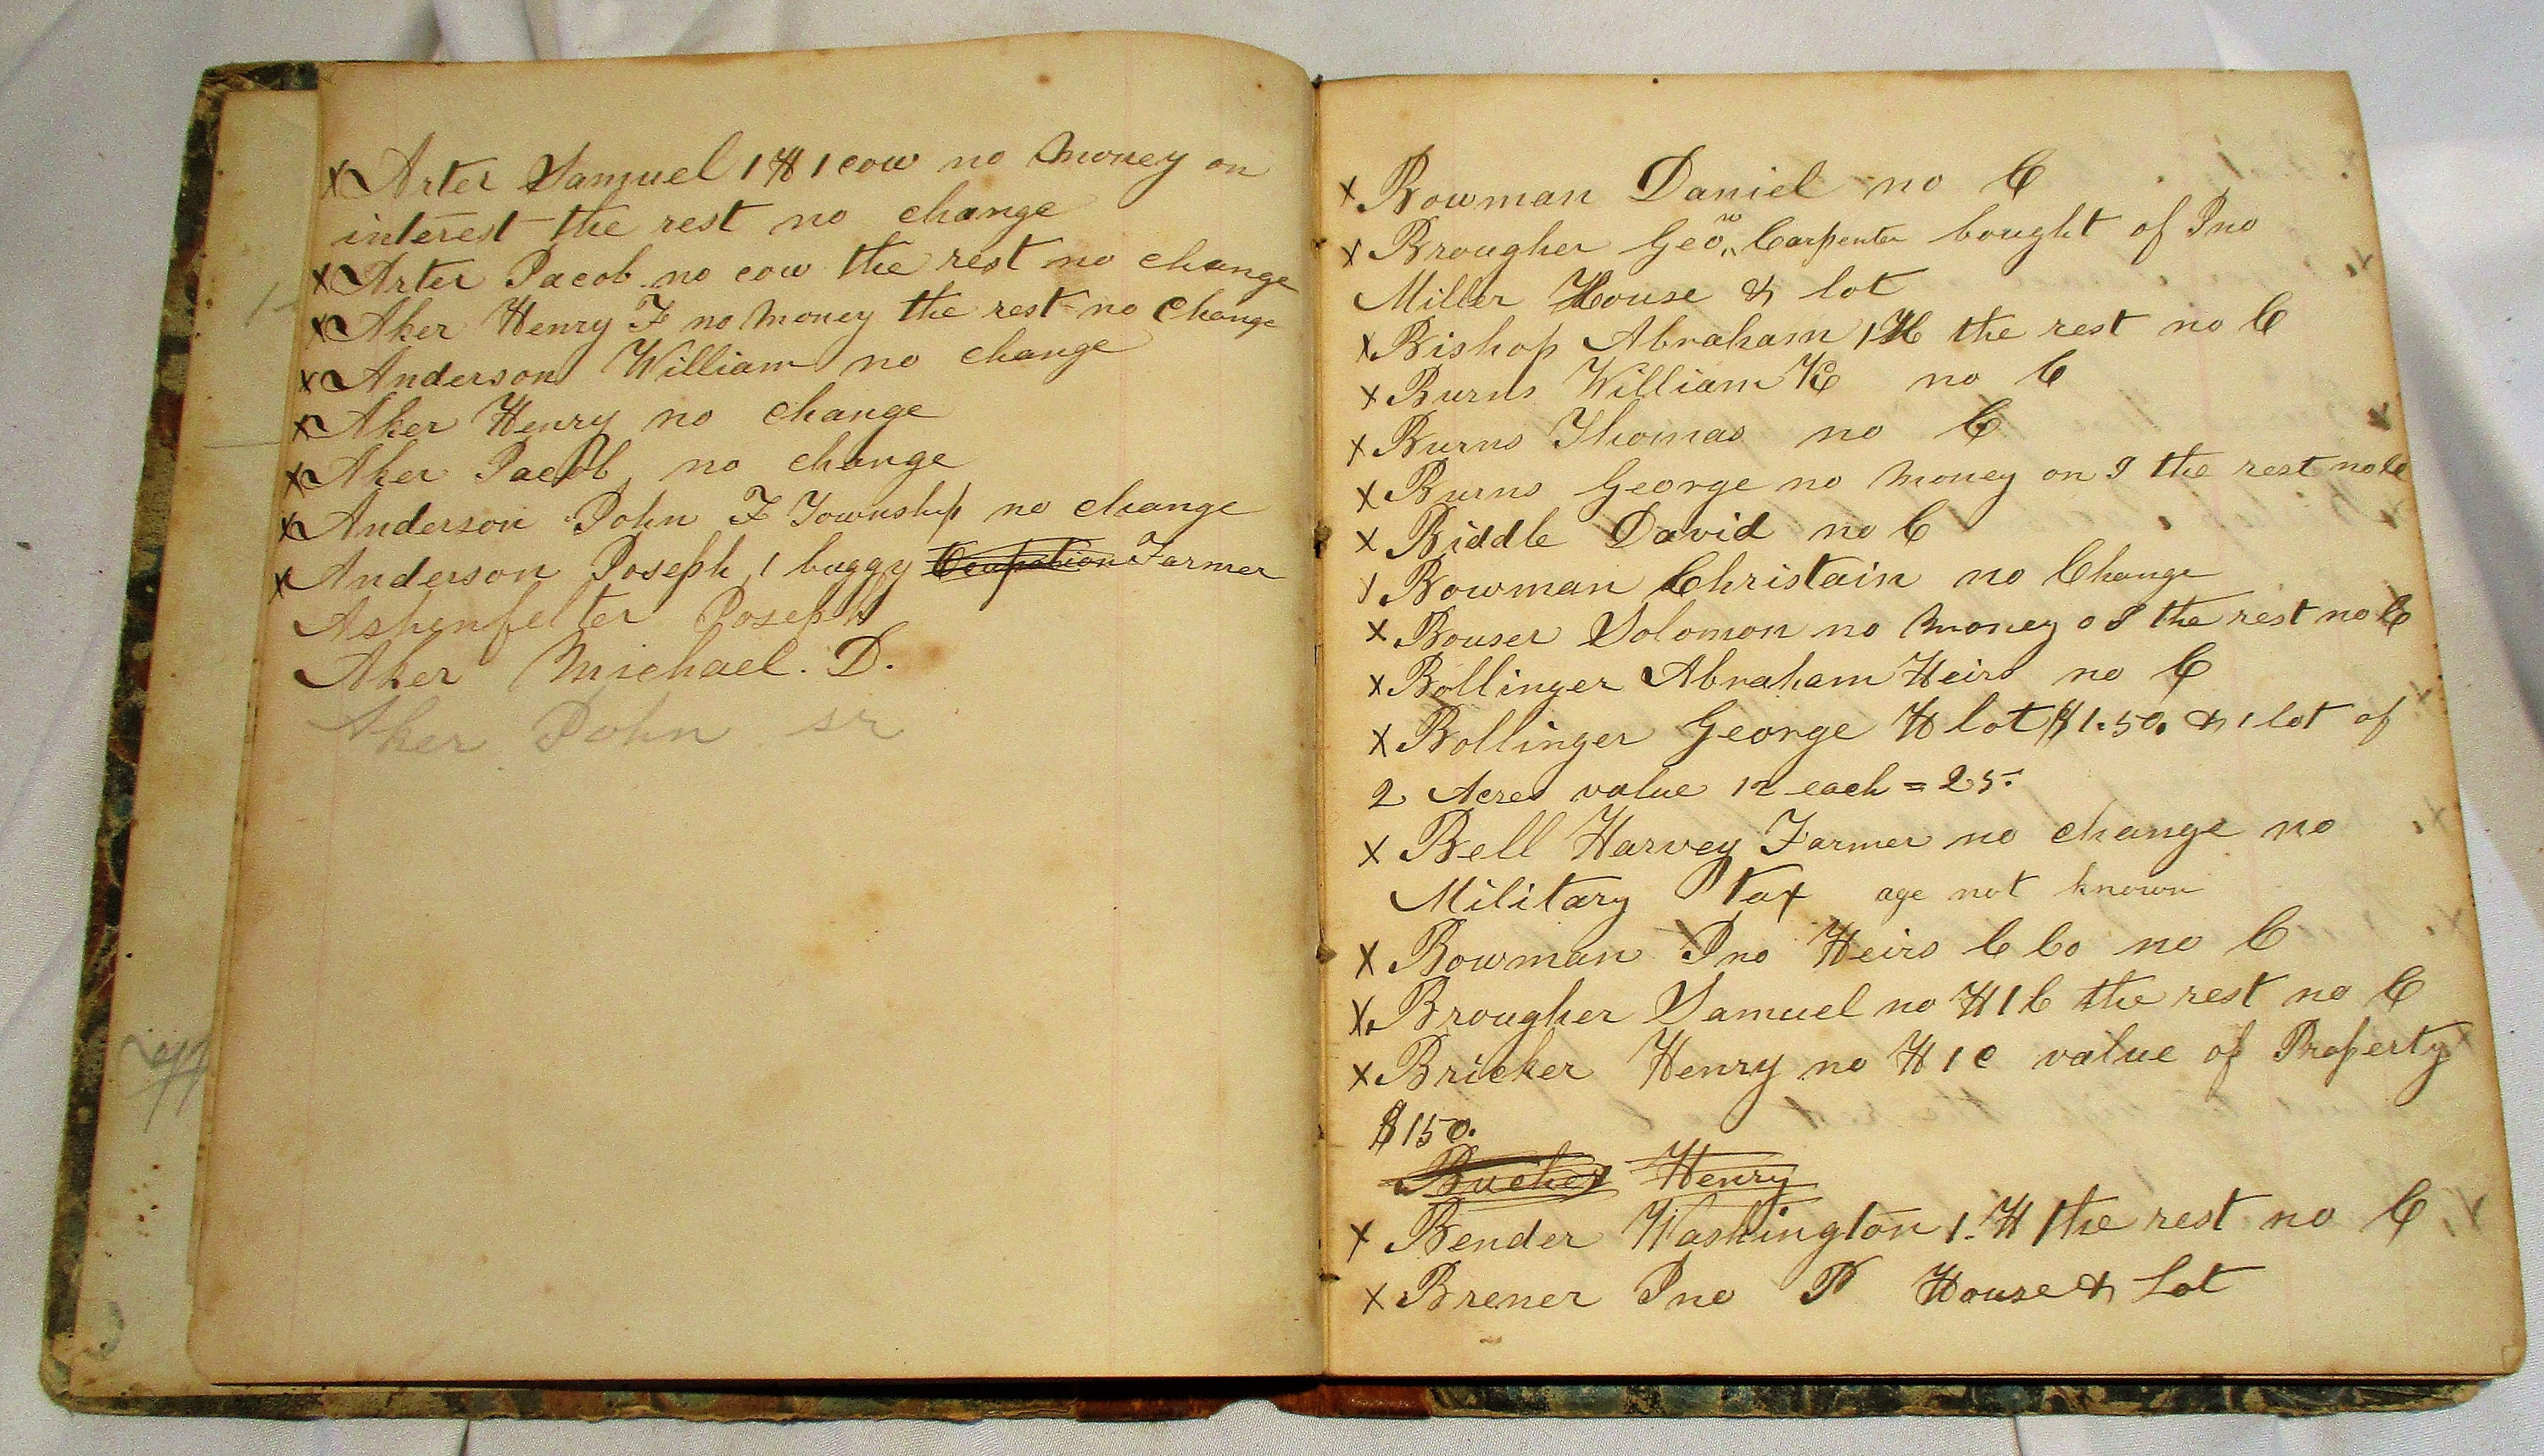 x Arter Samuel 1 H 1 cow no money on
interest the rest no change
x Arter Jacob no cow the rest no change
x Aker Henry F no money the rest no change
x Anderson William no change
x Aker Henry no change
x Aker Jacob no change
x Anderson John F Township no change
x Anderson Joseph 1 buggy Ocupation Farmer
Ashenfelter Joseph
Aker Michael. D.
Aker John sr
x Bowman Daniel no C
x Brougher Geo W Carpenter bought of Jno
Miller House & lot
x Bishop Abraham 1 H the rest no C
x Burns William H no C
x Burns Thomas no C
x Burns George no money on I the rest no C
x Biddle David no C
x Bowman Christain no Change
x Bouser Solomon no money o I the rest no C
x Bollinger Abraham Heirs no C
x Bollinger George H lot $1.50. & 1 lot of
2 Acres value 12 each = 25.
x Bell Harvey Farmer no change no
Military Tax age not known
x Bowman Jno Heirs C Co no C
x Brougher Samuel no H 1 C the rest no C
x Bricker Henry no H 1 C value of Property
$150.
Bucher Henry
x Bender Washington 1. H the rest no C
x Brener Jno House & Lot